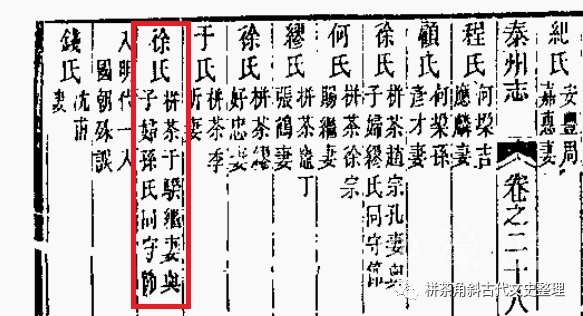 紀氏 安豐周嘉惠妻
泰州志 卷之二十八
程氏 何垜吉應麟妻
顧氏 何垜孫彥才妻
徐氏 栟茶趙宗孔妻與子婦繆氏同守節
何氏 栟茶徐宗賜繼妻
繆氏 栟茶竈丁張鶴妻
徐氏 栟茶繆好忠妻
于氏 栟茶季妻
徐氏 栟茶于騤繼妻與子婦孫氏同守節
入明代一人
國朝殊誤
錢氏 沈甫妻
栟茶角斜古代文史整理